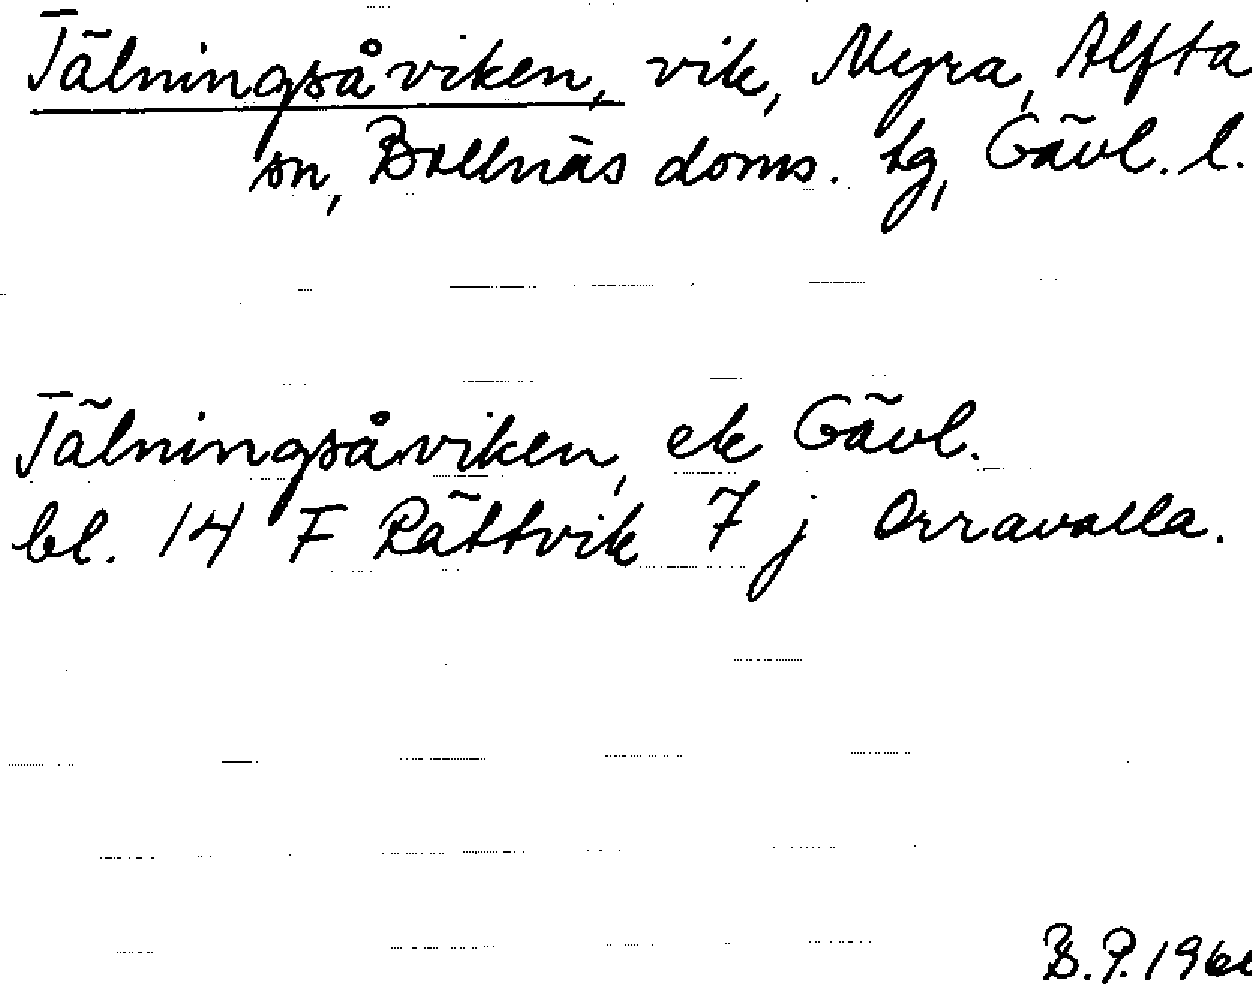 Tälningsåviken, vik, Myra, Alfta
sn, Bollnäs doms. tg, Gävl. l.
Tälningsåviken, ek Gävl.
bl. 14 F Rättvik 7 j Orravalla.
B.P.